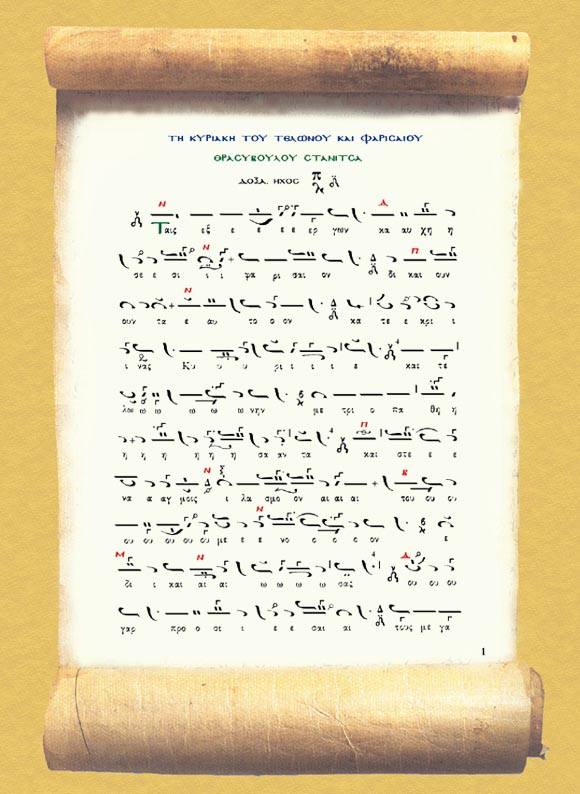 ΤΗ ΚΥΡΙΑΚΗ ΤΟΥ ΤΕΛΩΝΟΥ ΚΑΙ ΦΑΡΙΣΑΙΟΥ
ΘΡΑΣΥΒΟΥΛΟΥ ΣΤΑΝΙΤΣΑ
ΔΟΞΑ. ΗΧΟΣ
Ταις εξ ε ε ε ε ερ γων κα αυ χη η
σε ε σι ι ι φα ρι σαι ον δι και ουν
ουν τα ε αυ το ο ον κα τε ε κρι ι
ι νας Κυ υ υ ρι ι ι ε και τε
λω ω ω ω ω ω νην με τρι ο πα θη η
η η η η η η σα αν τα και στε ε ε
να α αγ μοις ι λα σμο ον αι αι αι του ου ου
ου ου ου ου ου με ε ε νο ο ο ο ον ε
δι ι και αι αι ω ω ω ω σας ου ου ου
γαρ προ ο σι ι ε ε σαι αι τους με γα
1